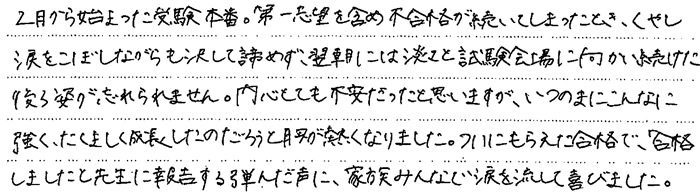 2月から始まった受験本番。第一志望を含め不合格が続いてしまったとき、くやし
涙をこぼしながらも決して諦めず、翌朝には淡々と試験会場に向かい続けた
後ろ姿が忘れられません。内心とても不安だったと思いますが、いつのまにこんなに
強く、たくましく成長したのだろうと胸が熱くなりました。ついにもらえた合格で、「合格
しました」と先生に報告する弾んだ声に、家族みんなで涙を流して喜びました。